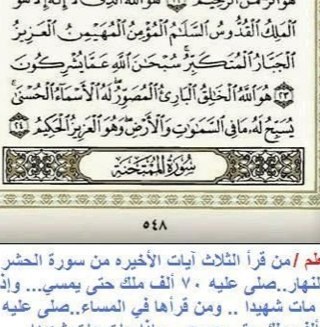 هو الرحمن الرحيم ٢٢ هو الله الذي لا إله إلا هو
الملك القدوس السلام المؤمن المهيمن العزيز
الجبار المتكبر سبحن الله عما يشركون
٢٣ هو الله الخلق البارئ المصور له الأسماء الحسنى
يسبح له ما في السموت والأرض وهو العزيز الحكيم ٢٤
سورة الممتحنة
٥٤٨
من قرأ الثلاث آيات الأخيره من سورة الحشر
لنهار..صلى عليه ٧٠ ألف ملك حتى يمسي... وإذ
مات شهيدا .. ومن قرأها في المساء..صلى عليه